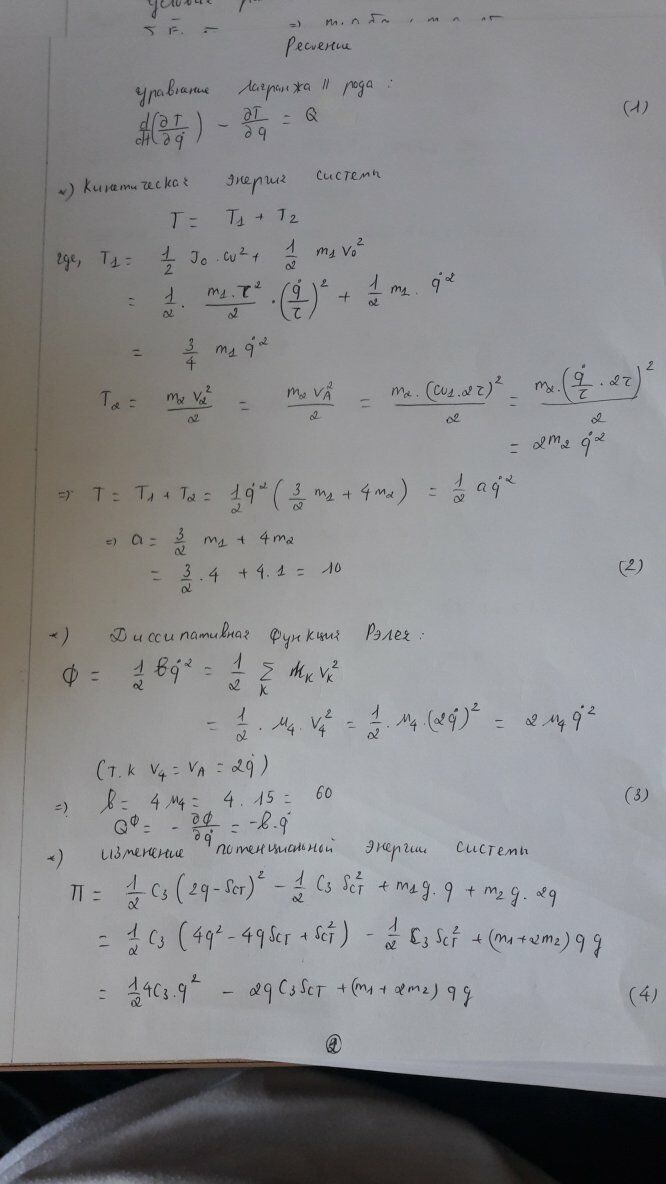 Решение
Уравнение Лагранжа II рода:
d/dt(∂T/∂q̇) − ∂T/∂q = Q (1)
*) Кинетическая энергия системы
T = T1 + T2
где, T1 = 1/2 J0 · ω² + 1/2 m1 V0²
= 1/2 · m1 · r²/2 · (q̇/r)² + 1/2 m1 · q̇²
= 3/4 m1 q̇²
T2 = m2 V2²/2 = m2 VA²/2 = m2 · (ω1 · 2r)²/2 = m2 · (q̇/r · 2r)²/2
= 2m2 q̇²
=> T = T1 + T2 = 1/2 q̇² (3/2 m1 + 4m2) = 1/2 a q̇²
=> a = 3/2 m1 + 4m2
= 3/2 · 4 + 4 · 1 = 10 (2)
*) Диссипативная функция Рэлея:
Φ = 1/2 b q̇² = 1/2 Σ_K μK VK²
= 1/2 · μ4 · V4² = 1/2 · μ4 · (2q̇)² = 2 μ4 q̇²
(т.к V4 = VA = 2q̇)
=> b = 4 μ4 = 4 · 15 = 60 (3)
Q^Φ = − ∂Φ/∂q̇ = −b · q̇
*) изменение потенциальной энергии системы
Π = 1/2 C3 (2q − δст)² − 1/2 C3 δст² + m1 g · q + m2 g · 2q
= 1/2 C3 (4q² − 4q δст + δст²) − 1/2 C3 δст² + (m1 + 2m2) q g
= 1/2 4C3 · q² − 2q C3 δст + (m1 + 2m2) q g (4)
2